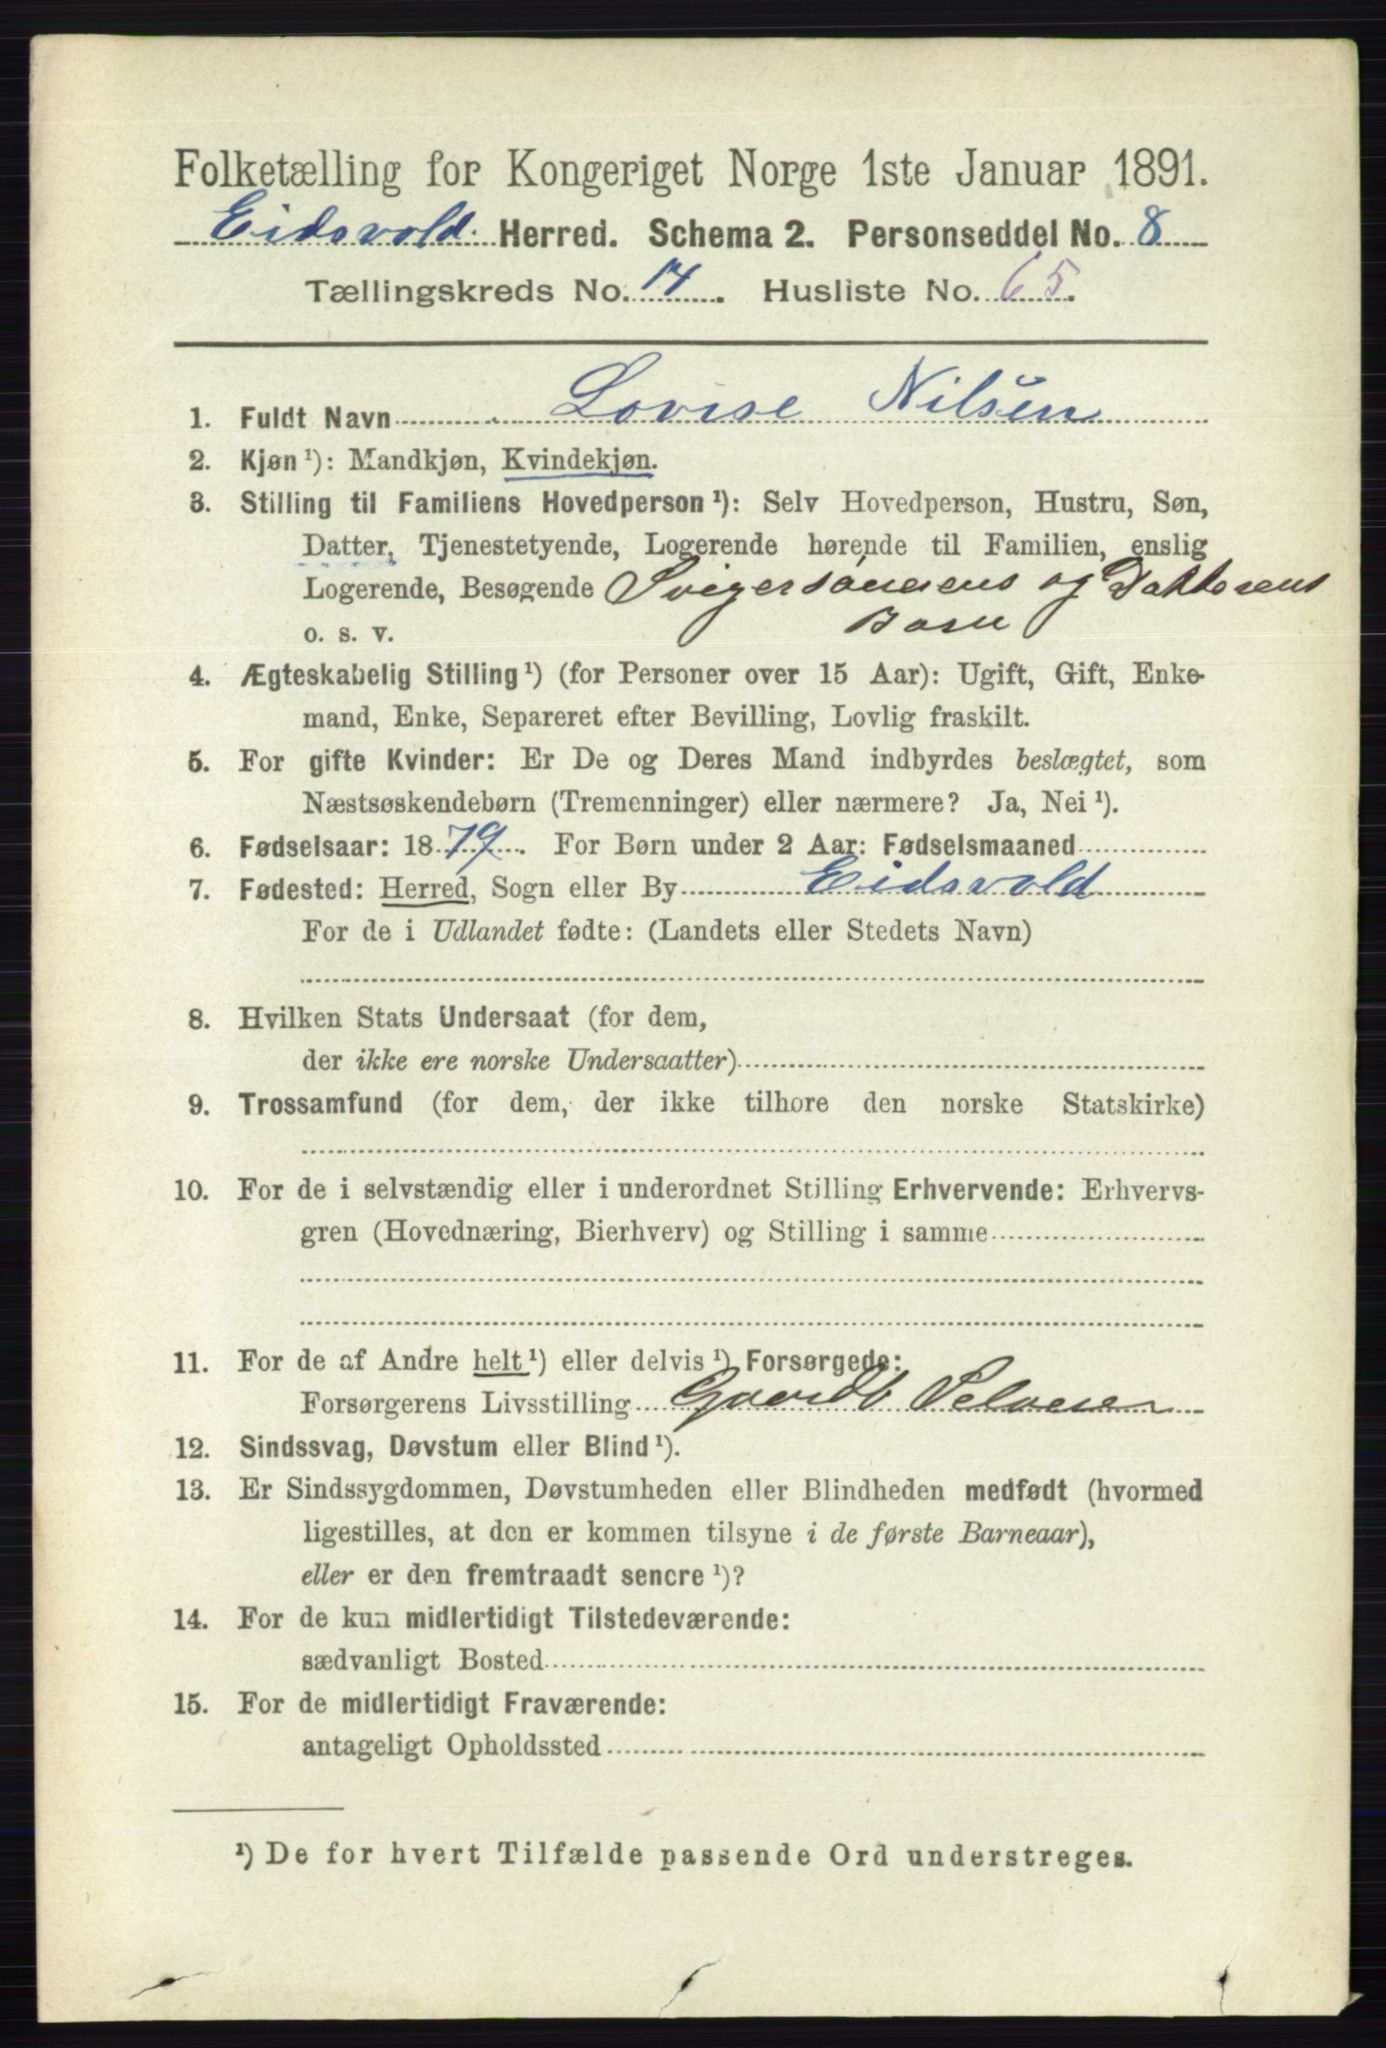 Folketælling for Kongeriget Norge 1ste Januar 1891.
Eidsvold Herred. Schema 2. Personseddel No. 8
Tællingskreds No. 14. Husliste No. 65.
1. Fuldt Navn Lovise Nilsen
2. Kjøn ¹): Mandkjøn, Kvindekjøn.
3. Stilling til Familiens Hovedperson ¹): Selv Hovedperson, Hustru, Søn,
Datter, Tjenestetyende, Logerende hørende til Familien, enslig
Logerende, Besøgende Svigersønnens og Datterens
o. s. v. Barn
4. Ægteskabelig Stilling ¹) (for Personer over 15 Aar): Ugift, Gift, Enke-
mand, Enke, Separeret efter Bevilling, Lovlig fraskilt.
5. For gifte Kvinder: Er De og Deres Mand indbyrdes beslægtet, som
Næstsøskendebørn (Tremenninger) eller nærmere? Ja, Nei ¹).
6. Fødselsaar: 1879. For Børn under 2 Aar: Fødselsmaaned
7. Fødested: Herred, Sogn eller By Eidsvold
For de i Udlandet fødte: (Landets eller Stedets Navn)
8. Hvilken Stats Undersaat (for dem,
der ikke ere norske Undersaatter)
9. Trossamfund (for dem, der ikke tilhøre den norske Statskirke)
10. For de i selvstændig eller i underordnet Stilling Erhvervende: Erhvervs-
gren (Hovednæring, Bierhverv) og Stilling i samme
11. For de af Andre helt ¹) eller delvis ¹) Forsørgede:
Forsørgerens Livsstilling Gaardb Selveier
12. Sindssvag, Døvstum eller Blind ¹).
13. Er Sindssygdommen, Døvstumheden eller Blindheden medfødt (hvormed
ligestilles, at den er kommen tilsyne i de første Barneaar),
eller er den fremtraadt senere ¹)?
14. For de kun midlertidigt Tilstedeværende:
sædvanligt Bosted
15. For de midlertidigt Fraværende:
antageligt Opholdssted
¹) De for hvert Tilfælde passende Ord understreges.